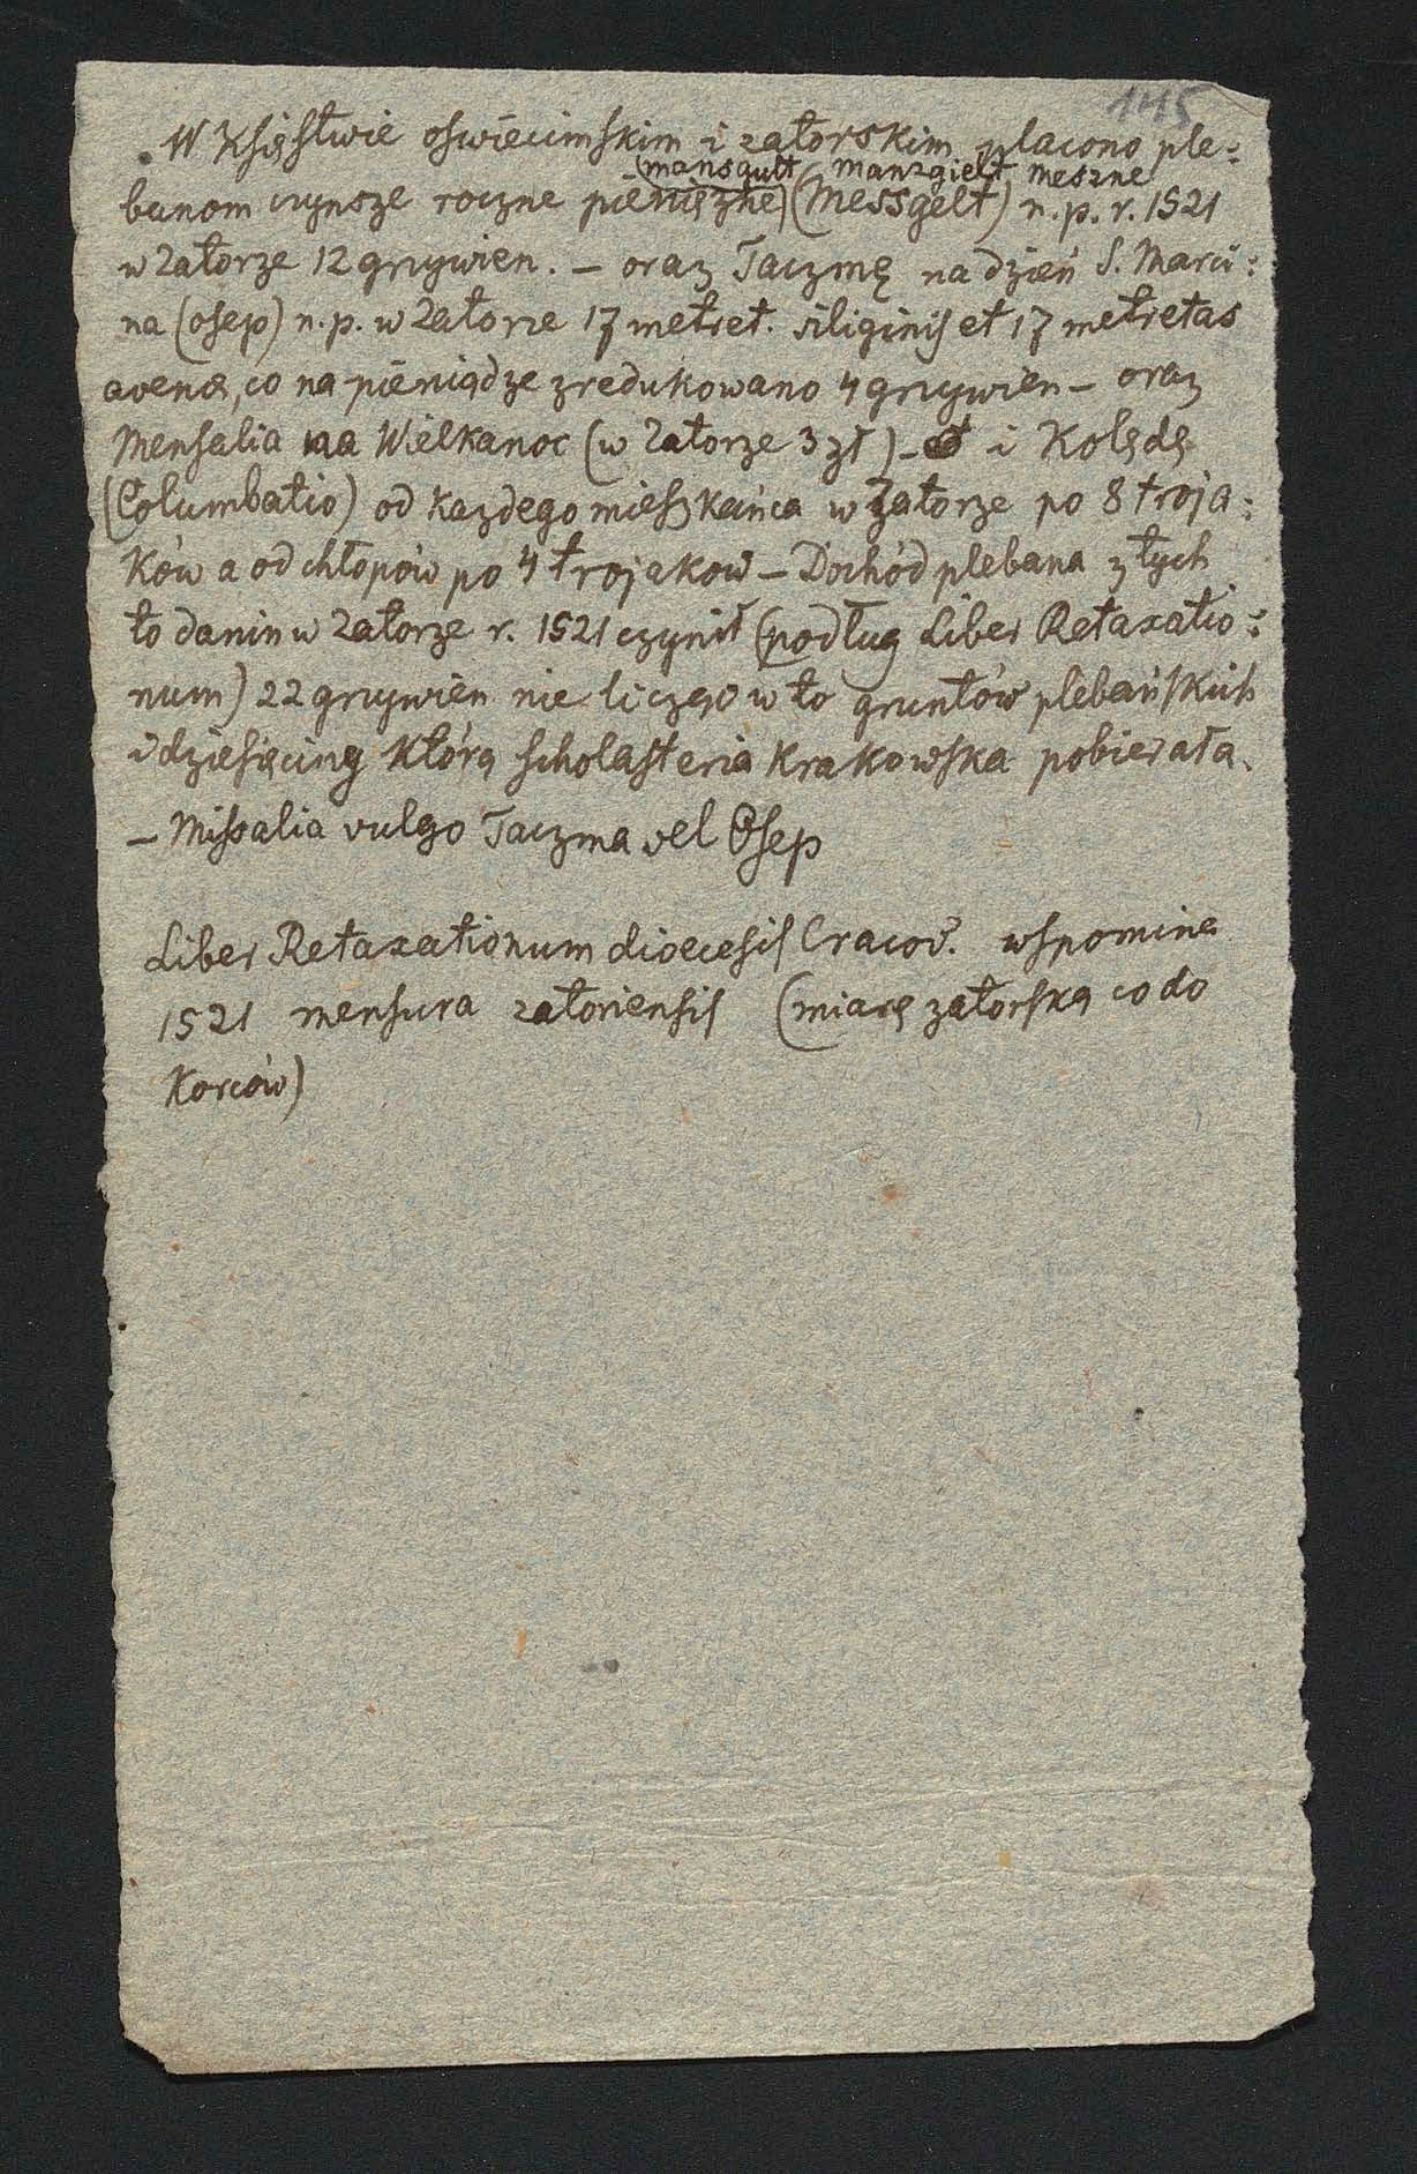 145
W Księstwie oswiecimskim i zatorskim płacono ple:
(mansgult manzgielt meszne
banom czynsze roczne pieniężne) (Messgelt) n.p. r. 1521
w Zatorze 12 grzywien. – oraz Taczmę na dzień S. Marci:
na (osep) n.p. w Zatorze 17 metret. siliginis et 17 metretas
avena, co na pieniądze zredukowano 4 grzywien – oraz
Mensalia na Wielkanoc (w Zatorze 3 zł) – i Kolędę
(Columbatio) od każdego mieszkańca w Zatorze po 8 troja:
ków a od chłopów po 4 trojakow – Dochód plebana z tych
to danin w Zatorze r. 1521 czynił (podług Liber Retaxatio:
num) 22 grzywien nie licząc w to gruntów plebańskich
i dziesięciny którą scholasteria Krakowska pobierała.
– Missalia vulgo Taczma vel Osep
Liber Retaxationum diocesis Cracov. wspomina
1521 mensura zatoriensis (miarę zatorską co do
Korców)